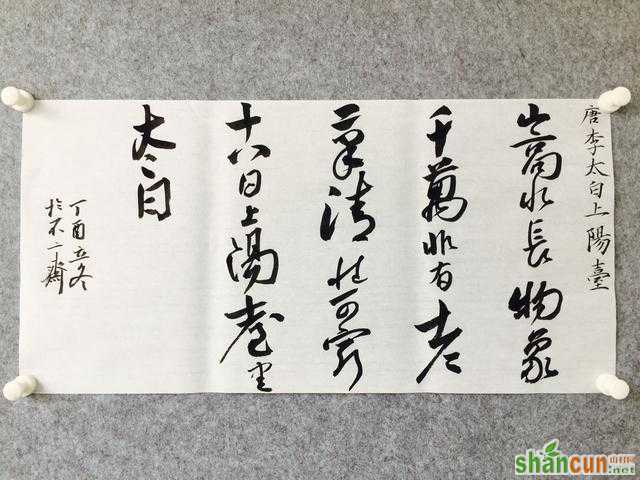 唐李太白上陽臺
山高水長物象
千萬非有老
筆清壯可窮
十八日上陽臺書
太白
丁酉立冬
於不二齋
shancun
山村网